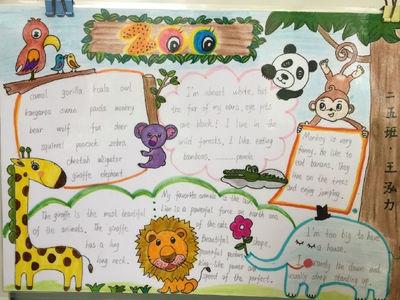 ZOO
camel gorilla koala owl
kangaroo swan panda monkey
bear wolf fox deer
squirrel peacock zebra
cheetah alligator
giraffe elephant
I'm almost white, but
the fur of my ears, eye pits
are black. I live in the
wild forests, I like eating
bamboos. panda
Monkey is very
funny. He like to
eat banana. They
live on the trees
and enjoy jumping.
二五班 王泓力
The giraffe is the most beautiful
of the animals. The giraffe
has a long
long neck.
My favorite animals is the lion.
Lion is a powerful force on earth and
of the cats,
Beautiful shape,
powerful
King-like power and
speed of the perfect.
I'm too big to have
a house.
I rarely lie down and
usually sleep standing up.